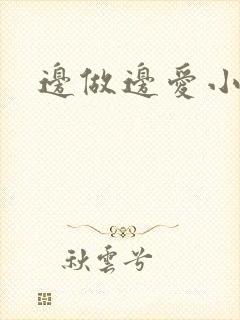 邊做邊愛小
秋雲兮